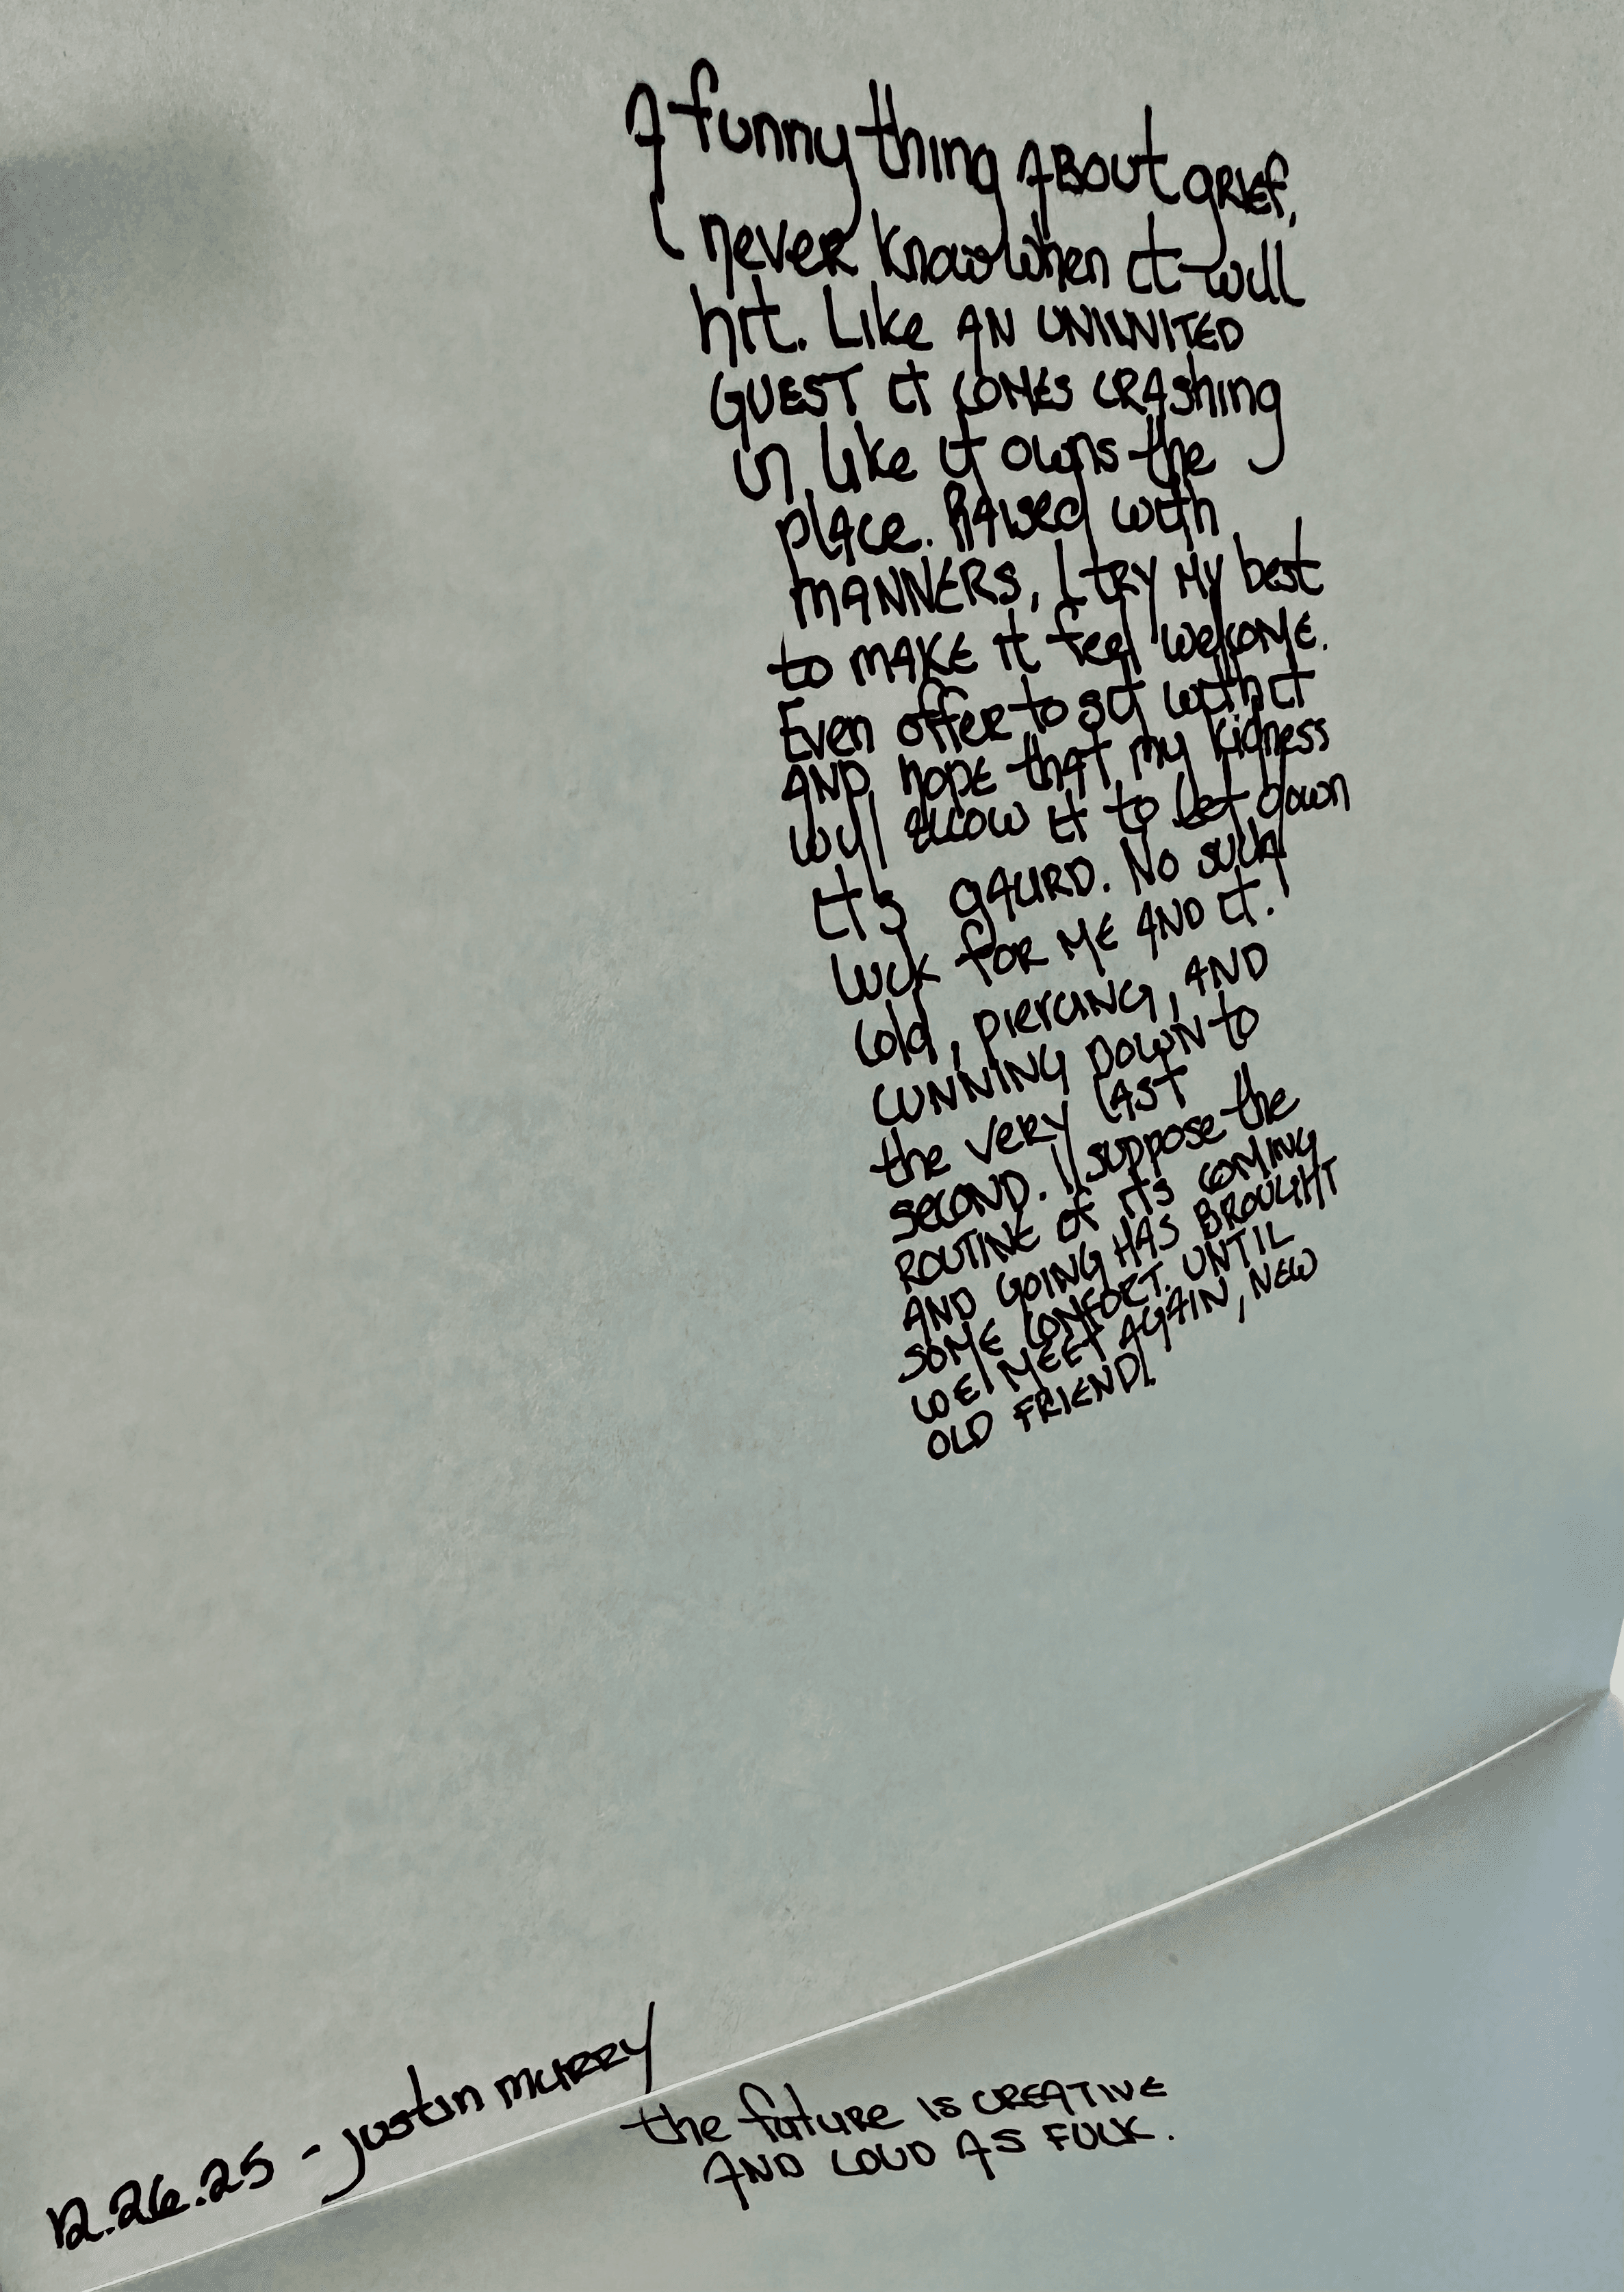 A funny thing ABOUT GRIEF,
I never know when it will
hit. Like AN UNINVITED
GUEST it COMES CRAshing
in like it owns the
plAce. RAised with
MANNERS, I tRY MY best
to MAKE it feel welcome.
Even offer to sit with it
AND hope thAT my kidness
will allow it to let down
it's gAURD. No such
luck foR ME AND it.
Cold, pierciNG, AND
CUNNING DOWN to
the very LAST
SECOND. I suppose the
ROUTINE of its COMING
AND GOING HAS BROUGHT
SOME COMFORT. UNTIL
WE MEET AGAIN, NEW
OLD FRIEND!
12.26.25 - justin muRRy
the future is CREATIVE
AND LOUD AS FUCK.